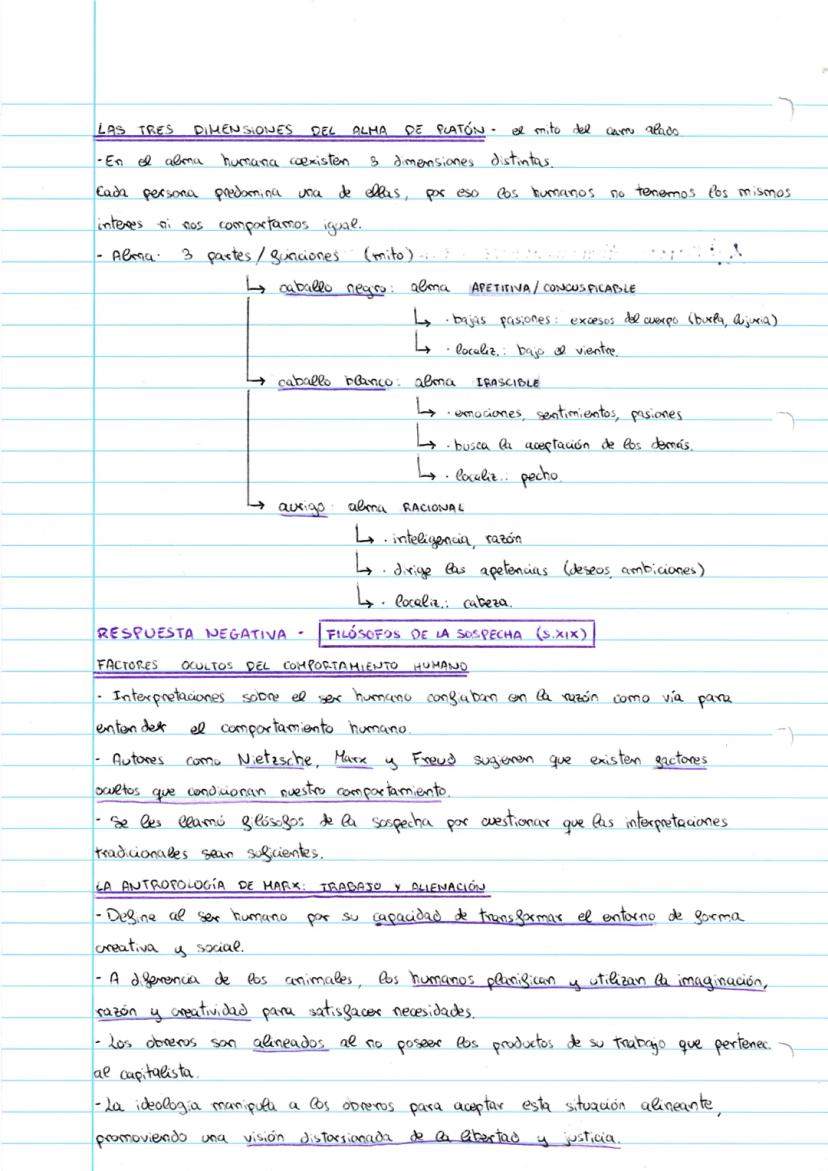 LAS TRES DIMENSIONES DEL ALMA DE PLATÓN - el mito del carro alado
- En el alma humana coexisten 3 dimensiones distintas.
Cada persona predomina una de ellas, por eso los humanos no tenemos los mismos
interes ni nos comportamos igual.
- Alma. 3 partes / funciones (mito)
↳ caballo negro: alma APETITIVA / CONCUSPICABLE
↳ · bajas pasiones: excesos del cuerpo (burla, lujuria)
↳ · localiz.: bajo el vientre.
↳ caballo blanco: alma IRASCIBLE
↳ · emociones, sentimientos, pasiones
↳ · busca la aceptación de los demás.
↳ · localiz.: pecho.
↳ auriga: alma RACIONAL
↳ · inteligencia, razón
↳ · dirige las apetencias (deseos, ambiciones)
↳ · localiz.: cabeza.
RESPUESTA NEGATIVA - FILÓSOFOS DE LA SOSPECHA (S.XIX)
FACTORES OCULTOS DEL COMPORTAMIENTO HUMANO
- Interpretaciones sobre el ser humano confiaban en la razón como vía para
entender el comportamiento humano.
- Autores como Nietzsche, Marx y Freud sugieren que existen factores
ocultos que condicionan nuestro comportamiento.
- Se les llamó filósofos de la sospecha por cuestionar que las interpretaciones
tradicionales sean suficientes.
LA ANTROPOLOGÍA DE MARX: TRABAJO Y ALIENACIÓN
- Define al ser humano por su capacidad de transformar el entorno de forma
creativa y social.
- A diferencia de los animales, los humanos planifican y utilizan la imaginación,
razón y creatividad para satisfacer necesidades.
- Los obreros son alineados al no poseer los productos de su trabajo que pertenec.
al capitalista.
- La ideología manipula a los obreros para aceptar esta situación alineante,
promoviendo una visión distorsionada de la libertad y justicia.